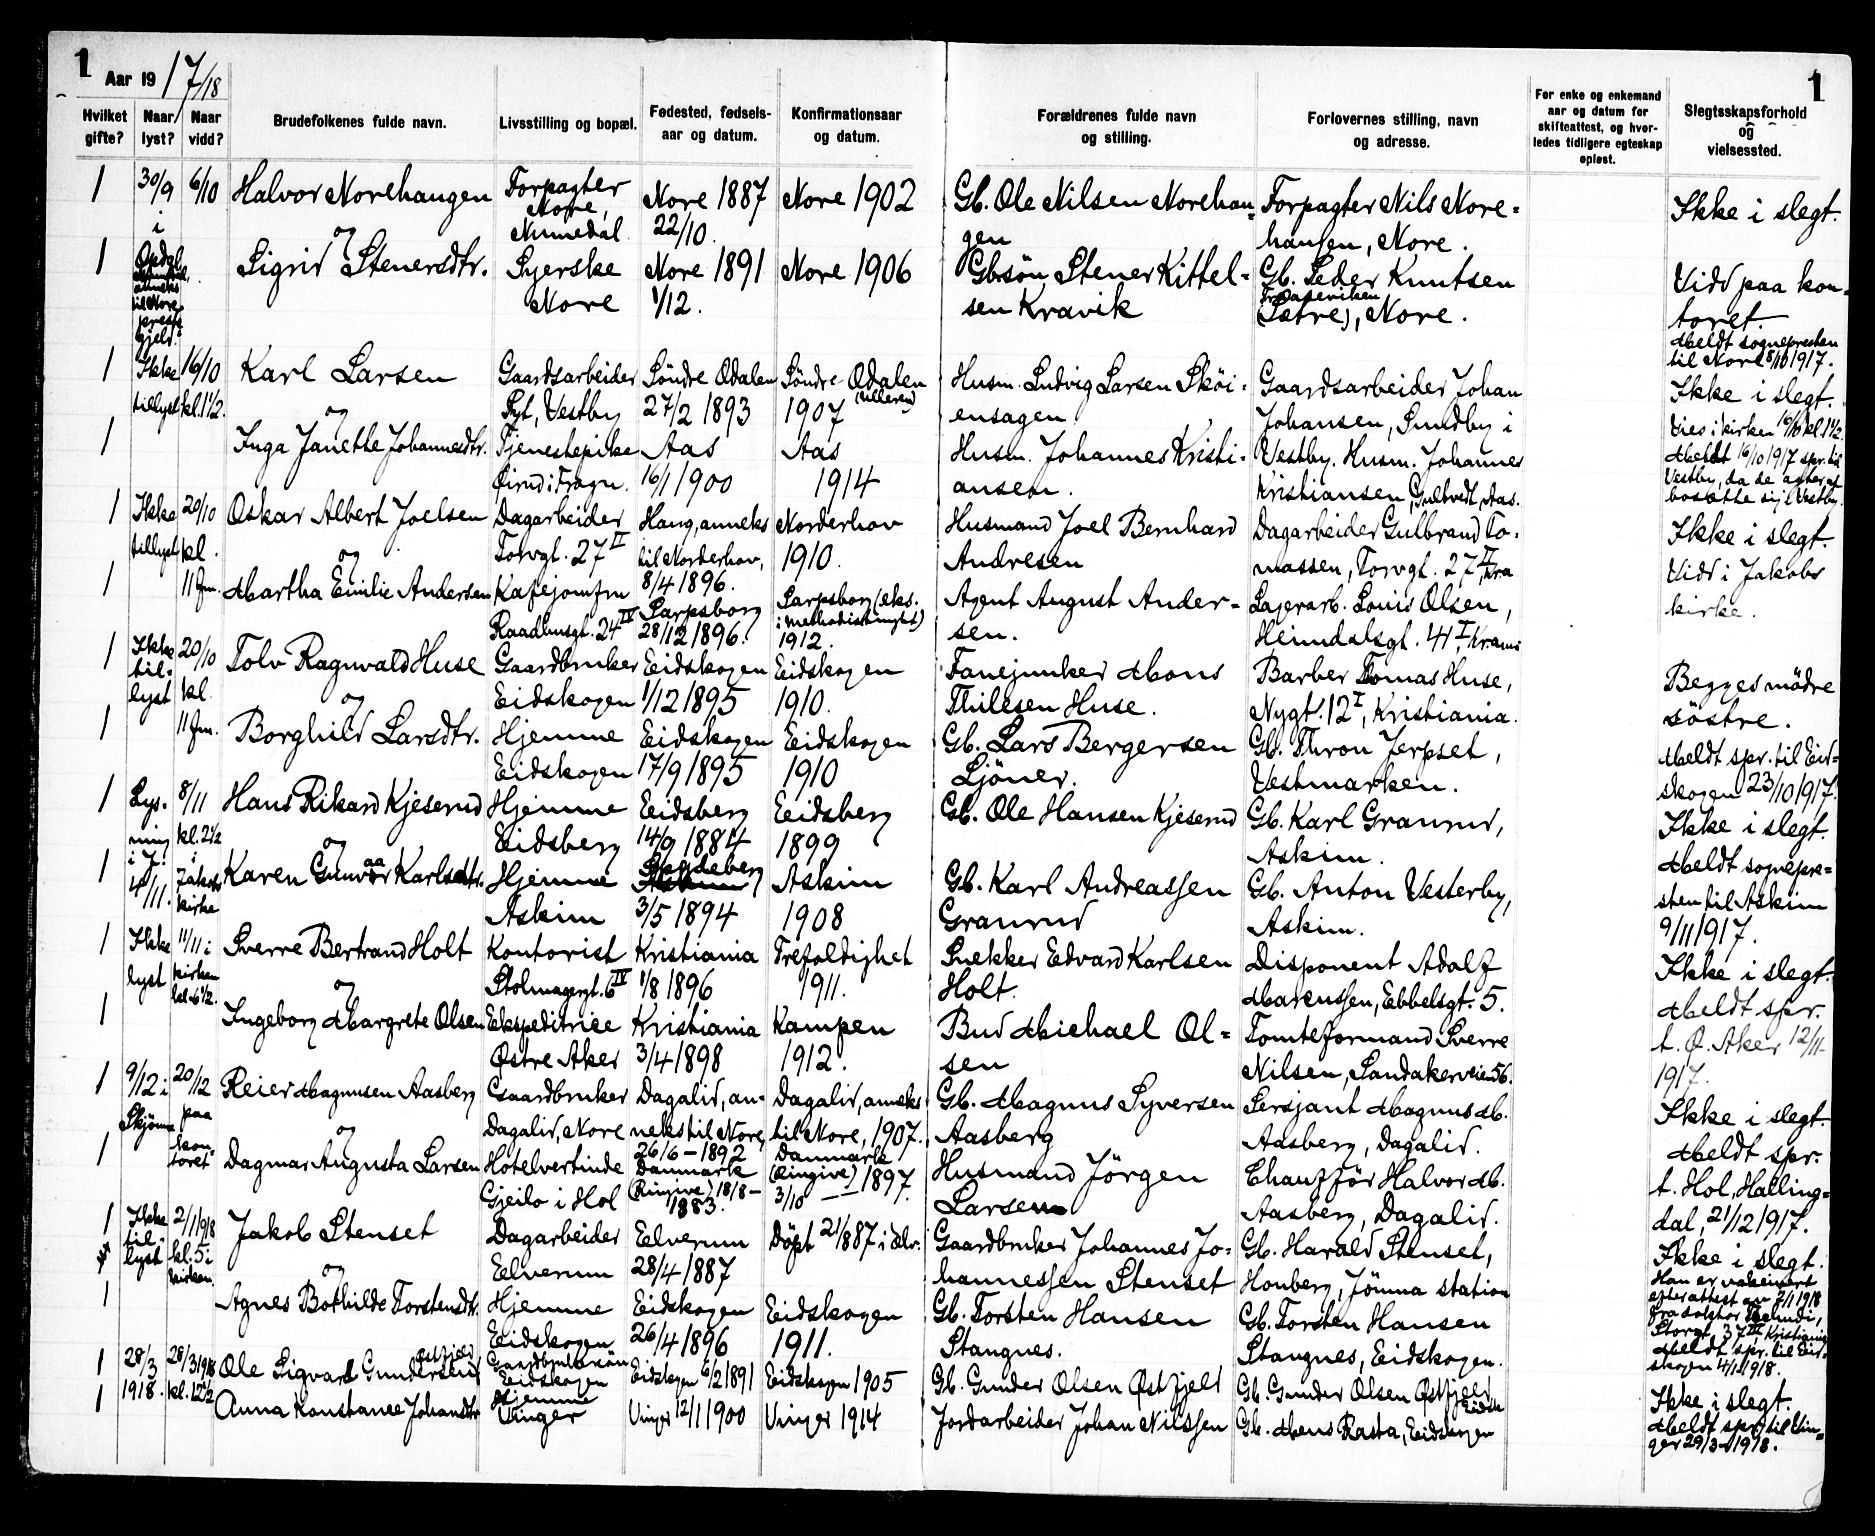 1
Aar 1917/18
1
Hvilket gifte?
Naar lyst?
Naar vidd?
Brudefolkenes fulde navn.
Livsstilling og bopæl.
Fødested, fødsels-
aar og datum.
Konfirmationsaar
og datum.
Forældrenes fulde navn
og stilling.
Forlovernes stilling, navn
og adresse.
For enke og enkemand
aar og datum for
skifteattest, og hvor-
ledes tidligere egteskap
opløst.
Slegtsskapsforhold
og
vielsessted.
1 30/9 6/10 Halvor Norehaugen Forpagter Nore 1887 Nore 1902 Gb. Ole Nilsen Norehau= Forpagter Nils Nore= Ikke i slegt.
i og Nore, Numedal 22/10. gen haugen, Nore.
1 Opdal, Sigrid Stenersdtr. Syerske Nore 1891 Nore 1906 Gbsön Stener Kittel= Gb. Peder Knutsen Vidd paa kon=
anneks til Nore prestegjeld. Nore 1/12. sen Kravik (Sætre), Nore. toret.
Meldt sognepresten
til Nore 8/10 1917.
1 Ikke 16/10 Karl Larsen Gaardsarbeider Söndre Odalen Söndre Odalen Husm. Ludvig Larsen Sköi= Gaardsarbeider Johan Ikke i slegt.
tillyst kl. 1 1/2. og Vestby 27/2 1893 1907 ensagen Johansen, Sundby i Vies i kirken 16/10 kl. 1 1/2
1 Inga Janette Johannesdtr. Tjenestepike Aas Aas Husm. Johannes Kristi= Vestby. Husm. Johannes Meldt 16/10 1917 spr. til
i Frogn. 16/1 1900 1914 ansen. Kristiansen, Aas. Vestby, da de agter at
bosætte sig i Vestby.
1 Ikke 20/10 Oskar Albert Joelsen Dagarbeider Haug, anneks Norderhov Husmand Joel Bernhard Dagarbeider Gulbrand To= Ikke i slegt.
tillyst kl. og Torvgt. 27 II til Norderhov, 1910. Andresen massen, Torvgt. 27 II, Kra
8/4 1896.
1 11 fm. Martha Emilie Andersen Kafejomfru Sarpsborg Sarpsborg (eks. Agent August Ander= Lagerarb. Louis Olsen, Vidd i Jakobs
Raadhusgt. 24 IV 28/12 1896. i methodistmenight) 1912. sen. Heimdalsgt. 41 I, Kr.ania kirke.
1 Ikke 20/10 Tolv Ragnvald Huse Gaardbruker Eidskogen Eidskogen Fanejunker Mons Barber Tomas Huse, Begges mödre
til= lyst kl. og Eidskogen 1/12 1895 1910. Thilesen Huse. Nygt. 12 I, Kristiania. söstre.
1 11 fm. Borghild Larsdtr. Hjemme Eidskogen Eidskogen Gb. Lars Bergersen Gb. Thron Jerpset, Meldt spr. til Eid=
Eidskogen 17/9 1895 1910 Sjöner. Vestmarken. skogen 23/10 1917.
1 Lys= 8/11 Hans Rikard Kjeserud Hjemme Eidsberg Eidsberg Gb. Ole Hansen Kjeserud Gb. Karl Graarud, Ikke i slegt.
ning kl. 2 1/2 og Eidsberg 14/9 1884 1899 Askim.
1 i 4/11. i Jakobs kirke Karen Gunvor Karlsdtr. Hjemme Spydeberg Askim Gb. Karl Andreassen Gb. Anton Vesterby, Meldt sognepre=
Askim 3/5 1894 1908 Graarud Askim. sten til Askim
9/11 1917.
1 Ikke 11/11 i Sverre Bertrand Holt Kontorist Kristiania Trefoldighet Snekker Edvard Karlsen Disponent Adolf Ikke i slegt.
lyst kirken kl. 6 1/2. og Stolmagergt. 6 IV 1/8 1896 1911. Holt. Marenssen, Ebbelsgt. 5.
1 Ingeborg Margrete Olsen Ekspeditrice Kristiania Kampen Bud Michael Ol= Tomteformand Sverre Meldt spr.
Østre Aker 3/4 1898 1912. sen Nilsen, Sandakerveien 56. t. Ø. Aker 12/11-
1917.
1 9/12 i 20/12 Reier Magnussen Aasberg Gaardbruker Dagalid, an= Dagalid, anneks Gb. Magnus Syversen Sersjant Magnus M. Ikke i slegt.
Skjönne paa kontoret og Dagalid, Nore neks til Nore, til Nore, 1907. Aasberg Aasberg, Dagalid.
26/6 - 1892
1 Dagmar Augusta Larsen Hotelvertinde Danmark Danmark Husmand Jörgen Chaufför Halvor M. Meldt spr.
Gjeilo i Hol (Ringive) 18/8 - 1883. (Ringive) 1897. 3/10 Larsen Aasberg, Dagalid. t. Hol, Halling=
dal, 21/12 1917.
1 Ikke 2/1 1918 Jakob Stenset Dagarbeider Elverum Döpt 2/1 887 i Elv. Gaardbruker Johannes Jo= Gb. Harald Stenset, Ikke i slegt.
til= lyst kl. 5 i kirken og Elverum 28/4 1887 hannessen Stenset Honberg, Jömna station Han er vakcinert
efter attest av 2/1 1918
1 Agnes Bothilde Torstensdtr. Hjemme Eidskogen Eidskogen Gb. Torsten Hansen Gb. Torsten Hansen Storgt. 37 III, Kristiania
Eidskogen 26/4 1896 1911. Stangnes. Stangnes, Eidskogen. Meldt spr. til Eid=
skogen 4/1 1918.
1 28/3 28/3 1918 Ole Sigvard Gundersen Östfjeld Gaardbrukersön Eidskogen Eidskogen 6/2 1891 Eidskogen 1905 Gb. Gunder Olsen Östfjeld Gb. Gunder Olsen Östfjeld, Eidsk Ikke i slegt.
1 1918. kl. 12 1/2 Anna Konstanse Johansdtr Hjemme Vinger Vinger 12/1 1900 Vinger 1914 Jordarbeider Johan Nilssen Gb. Mens Rasta, Eidskogen Meldt spr. til Vin=
ger 29/3 1918.